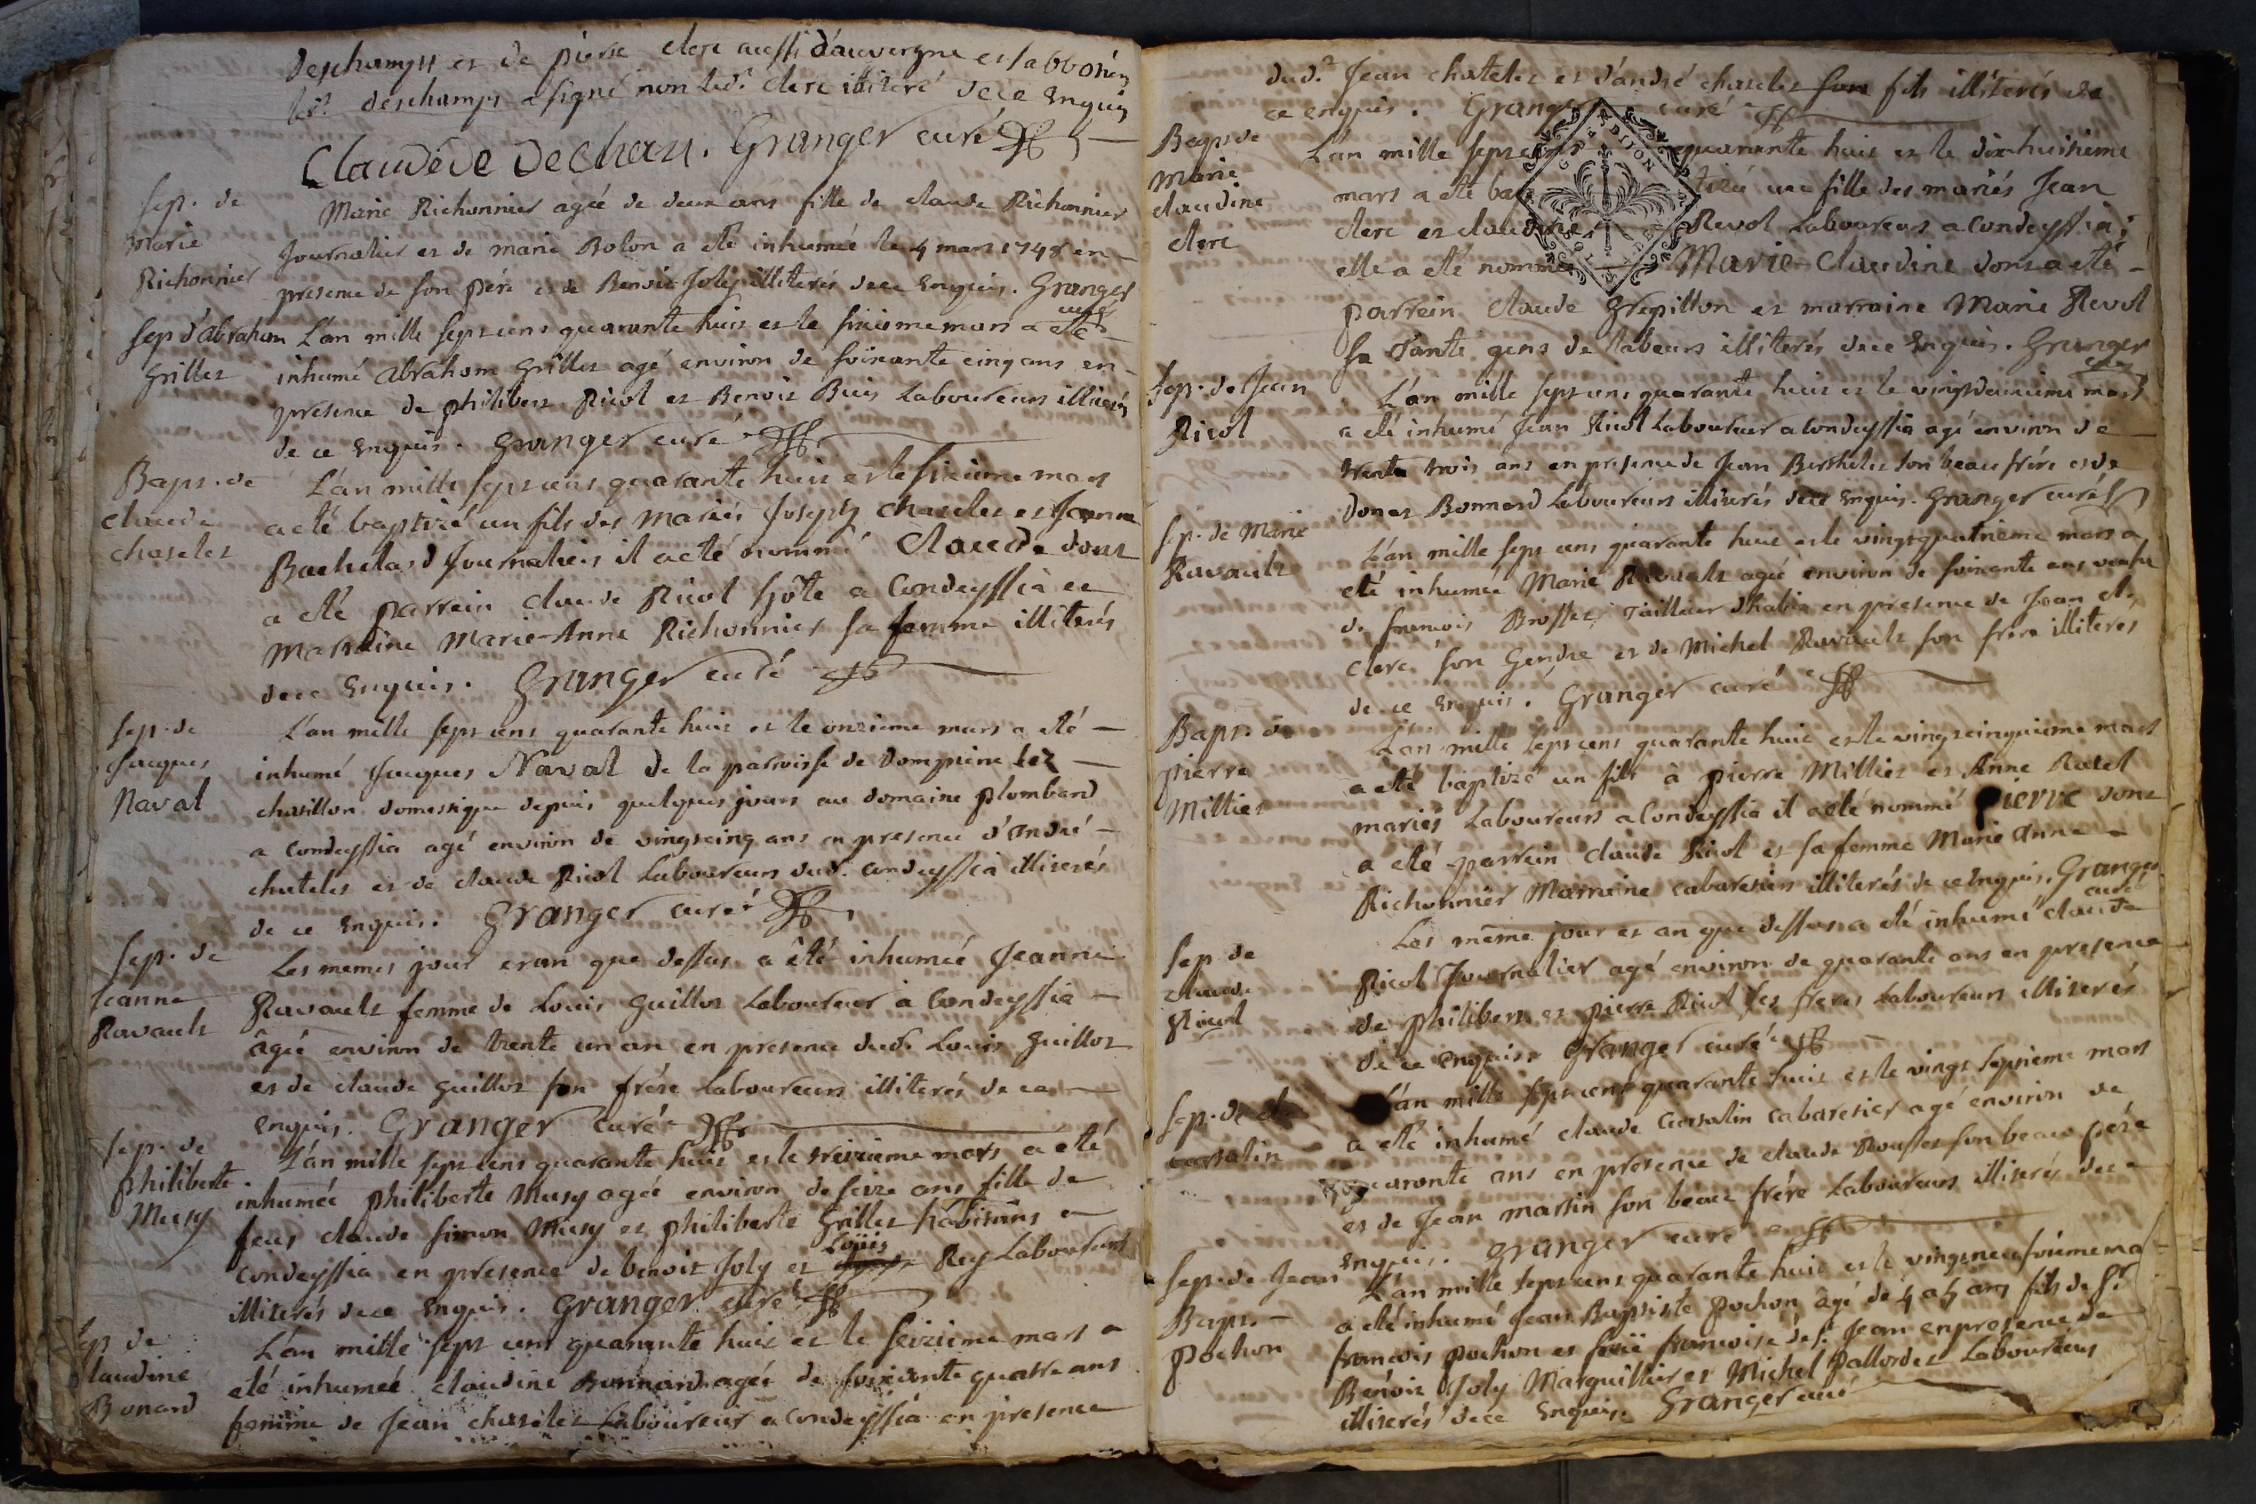 deschamps et de pierre clerc aussi d'auvergne et sabboner
led.t deschamps a signé non led.t clerc illiteré de ce Enquis
Claude de Dechan. Granger curé
Sep. de
Marie
Richonnier
Marie Richonnier agéé de deux ans fille de claude Richonnier
Journalier et de marie Bolon a eté inhumée le 4 mars 1748 en
presence de son père et de Benoit Joly illiterés de ce Enquis. Granger
curé
Sep d'abraham
Grillet
L'an mille sept cens quarante huit et le sixieme mars a eté
inhumé abraham Grillet agé environ de soixante cinq ans en
presence de philibert Ricol et Benoit Buis Laboureurs illiterés
de ce Enquis. Granger curé
Bapt. de
claude
chatelet
L'an mille sept cens quarante huit et le sixieme mars
a eté baptizé un fils des mariés Joseph chatelet et Jeanne
Bachelard Journaliers il a eté nommé Claude dont
a eté parrein claude Ricol hôte a Condeyssia et
Marraine Marie-Anne Richonnier sa femme illiterés
de ce Enquis. Granger curé
Sep. de
Jacques
Naval
L'an mille sept cens quarante huit et le onzieme mars a eté
inhumé Jacques Naval de la parroisse de Dompierre lez
chatillon domestique depuis quelques jours au domaine plombard
a Condeyssia agé environ de vingt cinq ans en presence d'André
chatelet et de claude Ricol Laboureurs dud. Condeyssia illiterés
de ce Enquis. Granger curé
Sep. de
Jeanne
Ravault
Les memes jour et an que dessus a été inhumée Jeanne
Ravault femme de Louis Guillot Laboureur à Condeyssia
âgée environ de trente un an en presence dud. Louis Guillot
et de claude Guillot son frére Laboureurs illiterés de ce
Enquis. Granger curé
Sep. de
philiberte
Musy
L'an mille sept cens quarante huit et le treizieme mars a eté
inhumée philiberte Musy agée environ de seize ans fille de
feus claude simon Musy et philiberte Grillet habitans a
Louis
Condeyssia en presence de benoit Joly et Rey Laboureurs
illiterés de ce Enquis. Granger curé
Sep de
claudine
Bonard
L'an mille sept cens quarante huit et le seizieme mars a
eté inhumeé claudine Bonnard agée de soixante quatre ans
femme de Jean chatelet Laboureur a Condeyssia en presence
dud.t Jean chatelet et d'andré chatelet son fils illiterés de
ce enquis. Granger curé
Bapt de
Marie
claudine
clerc
GENERALITE DE DIJON
L'an mille sept cens quarante huit et le dix huitieme
mars a eté baptizé une fille des mariés Jean
clerc et claudine Revol Laboureurs a Condeyssia;
elle a eté nommée Marie-Claudine dont a eté
parrein claude Grepillon et marraine Marie Revol
sa Tante gens de Labeurs illiterés de ce Enquis. Granger
curé
Sep. de Jean
Ricol
L'an mille sept cens quarante huit et le vingt deuxieme mars
a eté inhumé Jean Ricol Laboureur a Condeyssia agé environ de
trente trois ans en presence de Jean Berthelet son beau frére et de
Donat Bonnard Laboureurs illiterés de ce Enquis. Granger curé
Sep. de Marie
Ravault
L'an mille sept cens quarante huit et le vingt quatrieme mars a
eté inhumée Marie Ravault agée environ de soixante ans veufve
de francois Brosset Tailleur d'habit en presence de Jean cl.
clerc son Gendre et de Michel Ravault son frére illiteres
de ce Enquis. Granger curé
Bapt. de
pierre
Millier
L'an mille sept cens quarante huit et le vingt cinquieme mars
a eté baptizé un fils à pierre Millier et Anne Ratel
mariés Laboureurs a Condeyssia il a eté nommé pierre dont
a eté parrein claude Ricol et sa femme Marie Anne
Richonnier Marraine cabaretiers illiterés de ce Enquis. Granger
curé
Sep de
claude
Ricol
Les même jour et an que dessus a eté inhumé claude
Ricol Journalier agé environ de quarante ans en presence
de philibert et pierre Ricol ses freres Laboureurs illiterés
de ce Enquis. Granger curé
Sep. de cl.
corsatin
L'an mille sept cens quarante huit et le vingt septieme mars
a eté inhumé claude corsatin cabaretier agé environ de
quarante ans en presence de claude Rousset son beau pére
et de Jean martin son beau frére Laboureurs illiterés de ce
Enquis. Granger curé
Sep. de Jean
Bapt.
pochon
L'an mille sept cens quarante huit et le vingt neufviéme ma
a eté inhumé Jean Baptiste pochon âgé de 4 a 5 ans fils de S.r
francois pochon et feüe francoise de S.t Jean en presence de
Benoit Joly Marguillier et Michel Pallordet Laboureurs
illiterés de ce Enquis. Granger curé